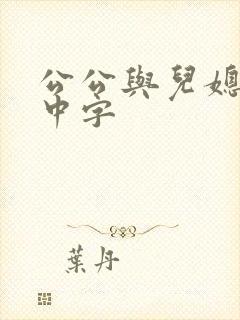 公公與兒媳
中字
葉丹